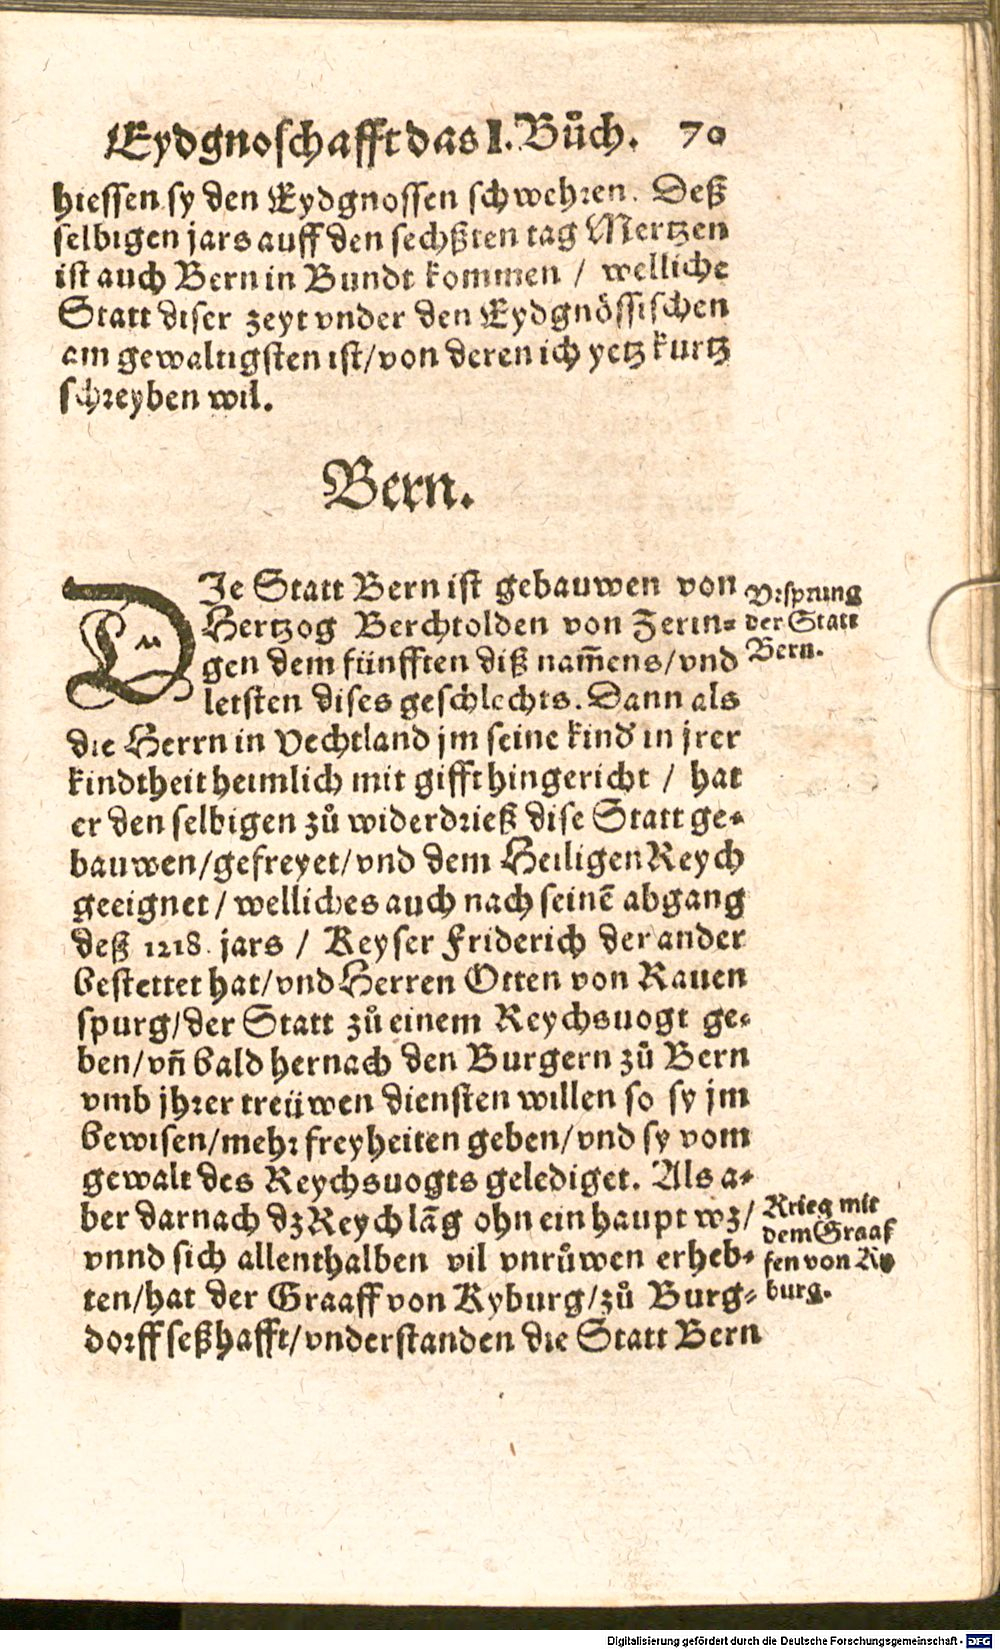 Eydgnoschafft das I. Bůch. 70
hiessen sy den Eydgnossen schwehren. Deß
selbigen jars auff den sechßten tag Mertzen
ist auch Bern in Bundt kommen / welliche
Statt diser zeyt vnder den Eydgnössischen
am gewaltigsten ist/von deren ich yetz kurtz
schreyben wil.
Bern.
DIe Statt Bern ist gebauwen von
Hertzog Berchtolden von Zerin-
gen dem fünfften diß nam̄ens/vnd
letsten dises geschlechts. Dann als
die Herrn in Vechtland jm seine kind in jrer
kindtheit heimlich mit gifft hingericht / hat
er den selbigen zů widerdrieß dise Statt ge-
bauwen/gefreyet/vnd dem Heiligen Reych
geeignet/welliches auch nach seinē abgang
deß 1218. jars / Keyser Friderich der ander
bestettet hat/vnd Herren Otten von Rauen
spurg/der Statt zů einem Reychsuogt ge-
ben/vn̄ bald hernach den Burgern zů Bern
vmb jhrer treüwen diensten willen so sy jm
bewisen/mehr freyheiten geben/vnd sy vom
gewalt des Reychsuogts gelediget. Als a-
ber darnach dz Reych lāg ohn ein haupt wz/
vnnd sich allenthalben vil vnrůwen erheb-
ten/hat der Graaff von Kyburg/zů Burg-
dorff seßhafft/vnderstanden die Statt Bern
Vrsprung
der Statt
Bern.
Krieg mit
dem Graaf
fen von Ky
burg.
Digitalisierung gefördert durch die Deutsche Forschungsgemeinschaft - DFG